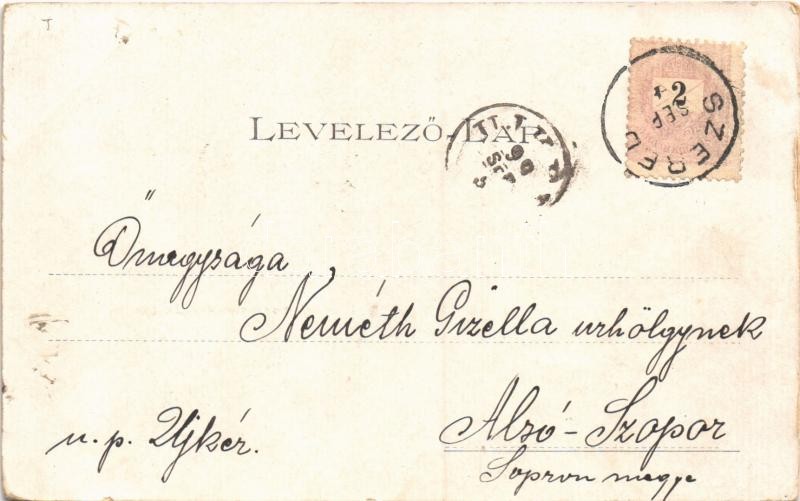 T
LEVELEZŐ-LAP
2
SZERED
SEP
Őnagysága
Neméth Gizella urhölgynek
u. p. Ujkér.
Alsó-Szopor
Sopron megye